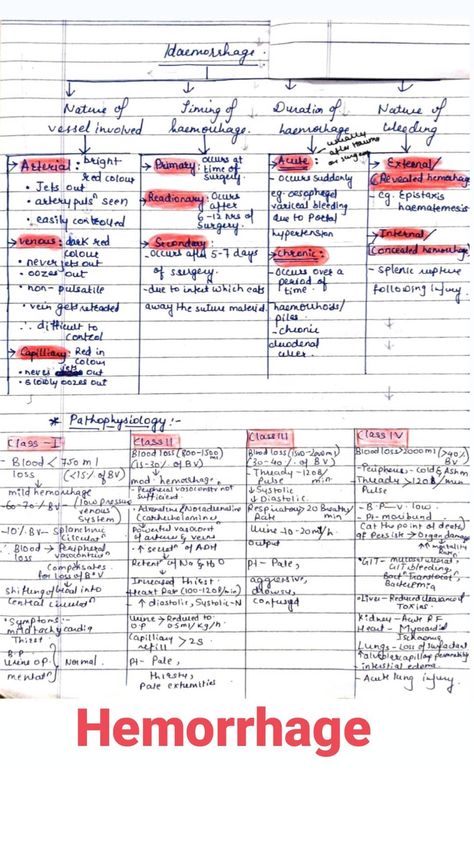 Haemorrhage
Nature of
vessel involved
Timing of
haemorhage.
Duration of
haemorhage
Nature of
bleeding
Arterial: bright
red colour
• Jets out
• artery puls^n seen
• easily controlled
Venous: dark red
colour
• never jets out
• oozes out
• non-pulsatile
• vein gets retraded
∴ difficult to
control
Capilliary: Red in
colour
• never jets out
• slowly oozes out
Primary: occurs at
time of
surgery.
Readionary: Occurs
after
6-12 hrs of
surgery.
Secondary:
-occurs after 5-7 days
of surgery.
-due to infect which eats
away the suture material.
Acute: usually
after trauma
or surgery
- occurs suddenly
eg. oesophegal
varical bleeding
due to Portal
hypertension
Chronic:
- occurs over a
period of
time.
haemorrhoids/
piles
- chronic
duodenal
ulcer.
External/
Revealed hemorhage
- eg. Epistaxis
haematemesis
Internal/
Concealed hemorhage
- splenic rupture
following injury
* Pathophysiology:-
Class-I
Blood < 750 ml
loss (<15% of BV)
mild hemorrhage
-60-70% BV - (low pressure
venous
system)
-10% BV - splanchnic
circulat^n
∴ Blood → Peripheral
loss vasocontric^n
Compensates
for loss of B.V
shifting of blood into
central circulat^n
• Symptoms:-
mild tachycardia
Thirst
B.P
Urine O.P Normal
mental
Class II
Blood loss (800-1500ml)
(15-30% of BV)
mod. hemorrhage
- Peripheral vasoconstr^n not
sufficient
• Adrenaline/Noradrenaline
(catheholamine)
Powerful vasoconst^n
of artery & veins
↑ secret^n of ADH
Retent^n of Na & H₂O
Increased Thirst
Heart Rate (100-120B/min)
↑ diastolic, Systolic-N
Urine → Reduced to
O.P 0.5ml/kg/h
Capilliary > 2s
refill
Pt - Pale,
thirsty,
Pale extremities
Class III
Blood loss (1500-2000ml)
(30-40% of BV)
- Thready - 120B/
Pulse min
↓ Systolic
↓ Diastolic.
Respiratory > 20 Breaths/
Rate min
Urine - 10-20ml/h
output
Pt - Pale,
aggressive,
drowsy,
confused
Class IV
Blood loss > 2000ml (>40%
BV)
- Periphery - cold & Ashm
- Thready > 120B/min
Pulse
- B.P - v. low
- Pt - moribund
(at the point of death)
• GIT - mucosal ulcerat^n,
GIT bleeding,
Bact^n Translocat^n,
Bacteremia
• Liver - Reduced clearance of
toxins
Kidney - Acute RF
Heart - Myocardi
Ischaemia,
Lungs - Loss of surfactant
↑ alveolocapillary permeability
- interstial edema
- Acute lung injury.
Hemorrhage